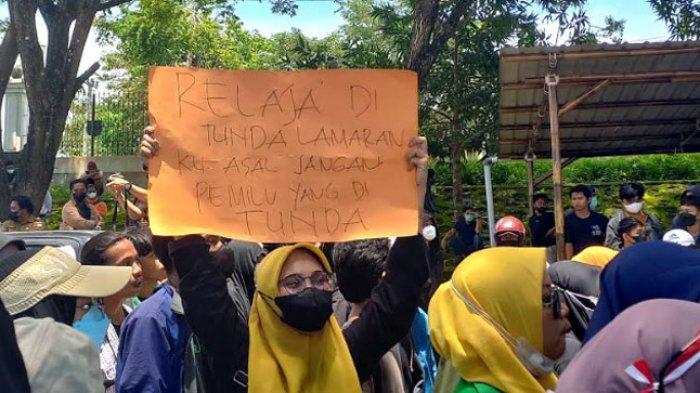 RELAJA' DI
TUNDA LAMARAN
KU ASAL JANGAN
PEMILU YANG DI
TUNDA